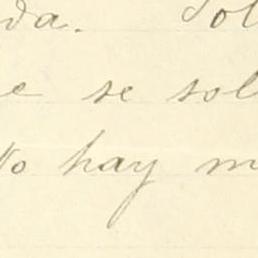 da. Sol
e se sol
No hay m